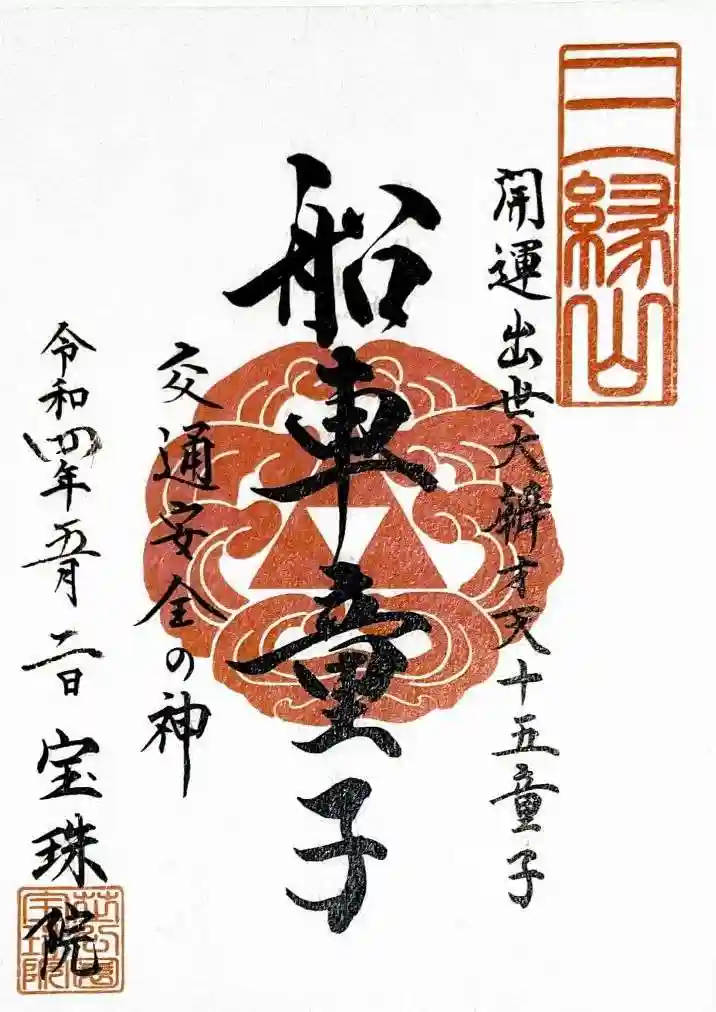 三縁山
開運出世大辨才天十五童子
船車童子
交通安全の神
令和四年五月二日 宝珠院